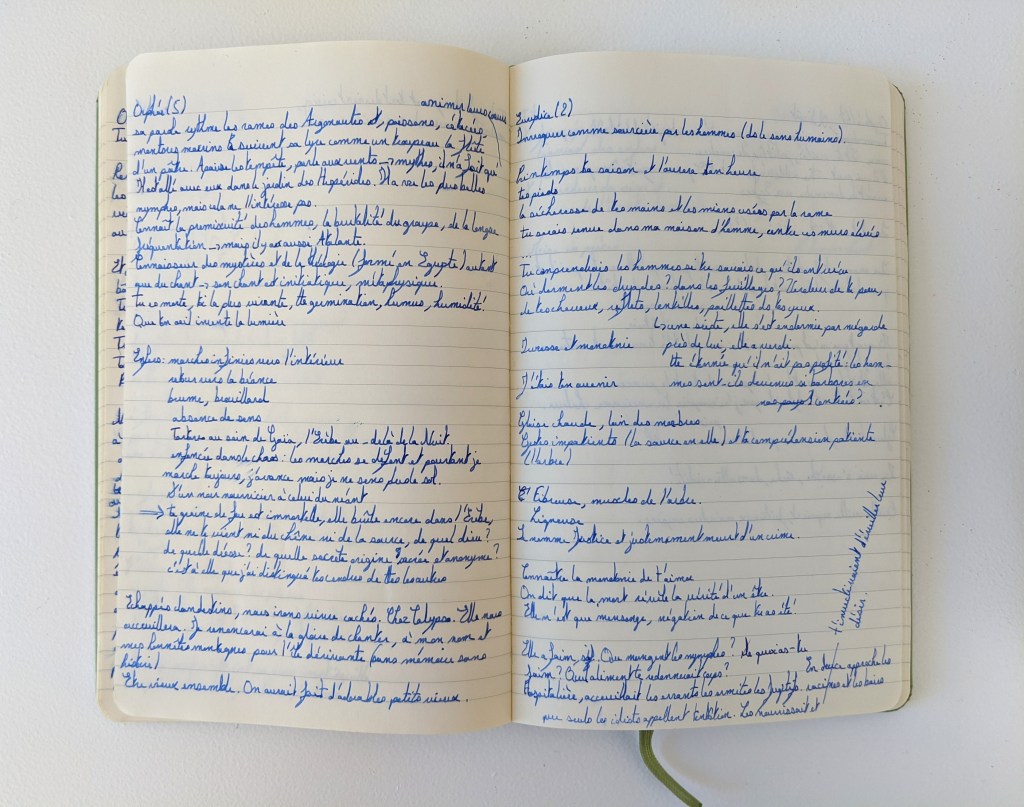 Orphée (5)
animer leurs
sa parole rythme les rames des Argonautes et, poissons, cétacés,
monstres marins le suivent sa lyre comme un troupeau la flûte
d'un pâtre. Apaise les tempêtes, parle aux vents → mythes, il n'a fait qu'
Il est allé avec eux dans le jardin des Hespérides. Il a vu les plus belles
nymphes, mais cela ne l'intéresse pas.
Connaît la promiscuité des hommes, la brutalité du groupe, de la longue
fréquentation → mais il y a aussi Atalante.
Connaisseur des mystères et de la théologie (formé en Égypte) autant
que du chant → son chant est initiatique, métaphysique.
Tu es morte, toi la plus vivante, germination, humus, humidité.
Que ton œil invente la lumière
Enfers : marches infinies vers l'intérieur
retour vers la béance
brume, brouillard
absence de sens
Tartare au sein de Gaïa, l'Érèbe au-delà de la Nuit.
enfoncée dans le chaos : les marches se défont et pourtant je
marche toujours, j'avance mais je ne sens plus le sol.
D'un noir nourricier à celui du néant
⇒ ta graine de feu est immortelle, elle brûle encore dans l'Érèbe,
elle ne te vient ni du chêne ni de la source, de quel dieu ?
de quelle déesse ? de quelle secrète origine sacrée et anonyme ?
c'est à elle que j'ai distingué tes cendres de les autres
Échappés clandestins, nous irons vivre cachés. Chez Calypso. Elle nous
accueillera. Je renoncerai à la gloire de chanter, à mon nom et
mes montagnes pour l'île dérivante (sans mémoire sans
histoire)
Être vieux ensemble. On aurait fait d'adorables petits vieux.
Eurydice (2)
Invoquer comme sourcière par les hommes (do le sens humains).
Printemps ta saison et l'aurore ton heure
tes pieds
la sécheresse de tes mains et les miens usées par la rame
tu serais venue dans ma maison d'homme, entre ces murs élevés
...
tu comprendrais les hommes si tu savais ce qu'ils ont créé
Où dorment les dryades ? dans les feuillages ? Verdeur de ta peau,
de tes cheveux, reflets, lentilles, paillettes de tes yeux.
↳ une sieste, elle s'est endormie par mégarde
Ivresse et monotonie près de lui, elle a verdi.
étonnée qu'il n'ait pas profité : les hom-
J'étais ton avenir mes sont-ils devenus si barbares en
nos pays l'entrée ?
Glaise chaude, loin des marbres
Gestes impatients (la source en elle) et ta compréhension patiente
(l'arbre)
Fibreuse, muscles de l'arbre.
Ligneuse
Se nomme Justice et justement meurt d'un crime.
Connaître la monotonie de t'aimer
On dit que la mort révèle la vérité d'un être.
Elle n'est que mensonge, négation de ce que tu as été
Elle a faim. Que mangent les nymphes ? De quoi as-tu
faim ? Quel aliment te redonnerait corps ? En douce approche les
Hospitalière, accueillait les errants les ermites les fugitifs. racines et les baies
que seuls les idiots appellent tentation. Les nourrissait et
t'invectivaient d'éveiller leur
désir.